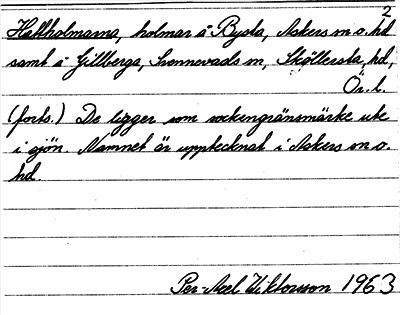 2
Hallholmarna, holmar å Bysta, Askers sn o. hd
samt å Gillberga, Svennevads sn, Sköllersta hd,
Ör. l.
(forts.) De ligger som sockengränsmärke ute
i sjön. Namnet är upptecknat i Askers sn o.
hd.
Per-Axel Wiktorsson 1963